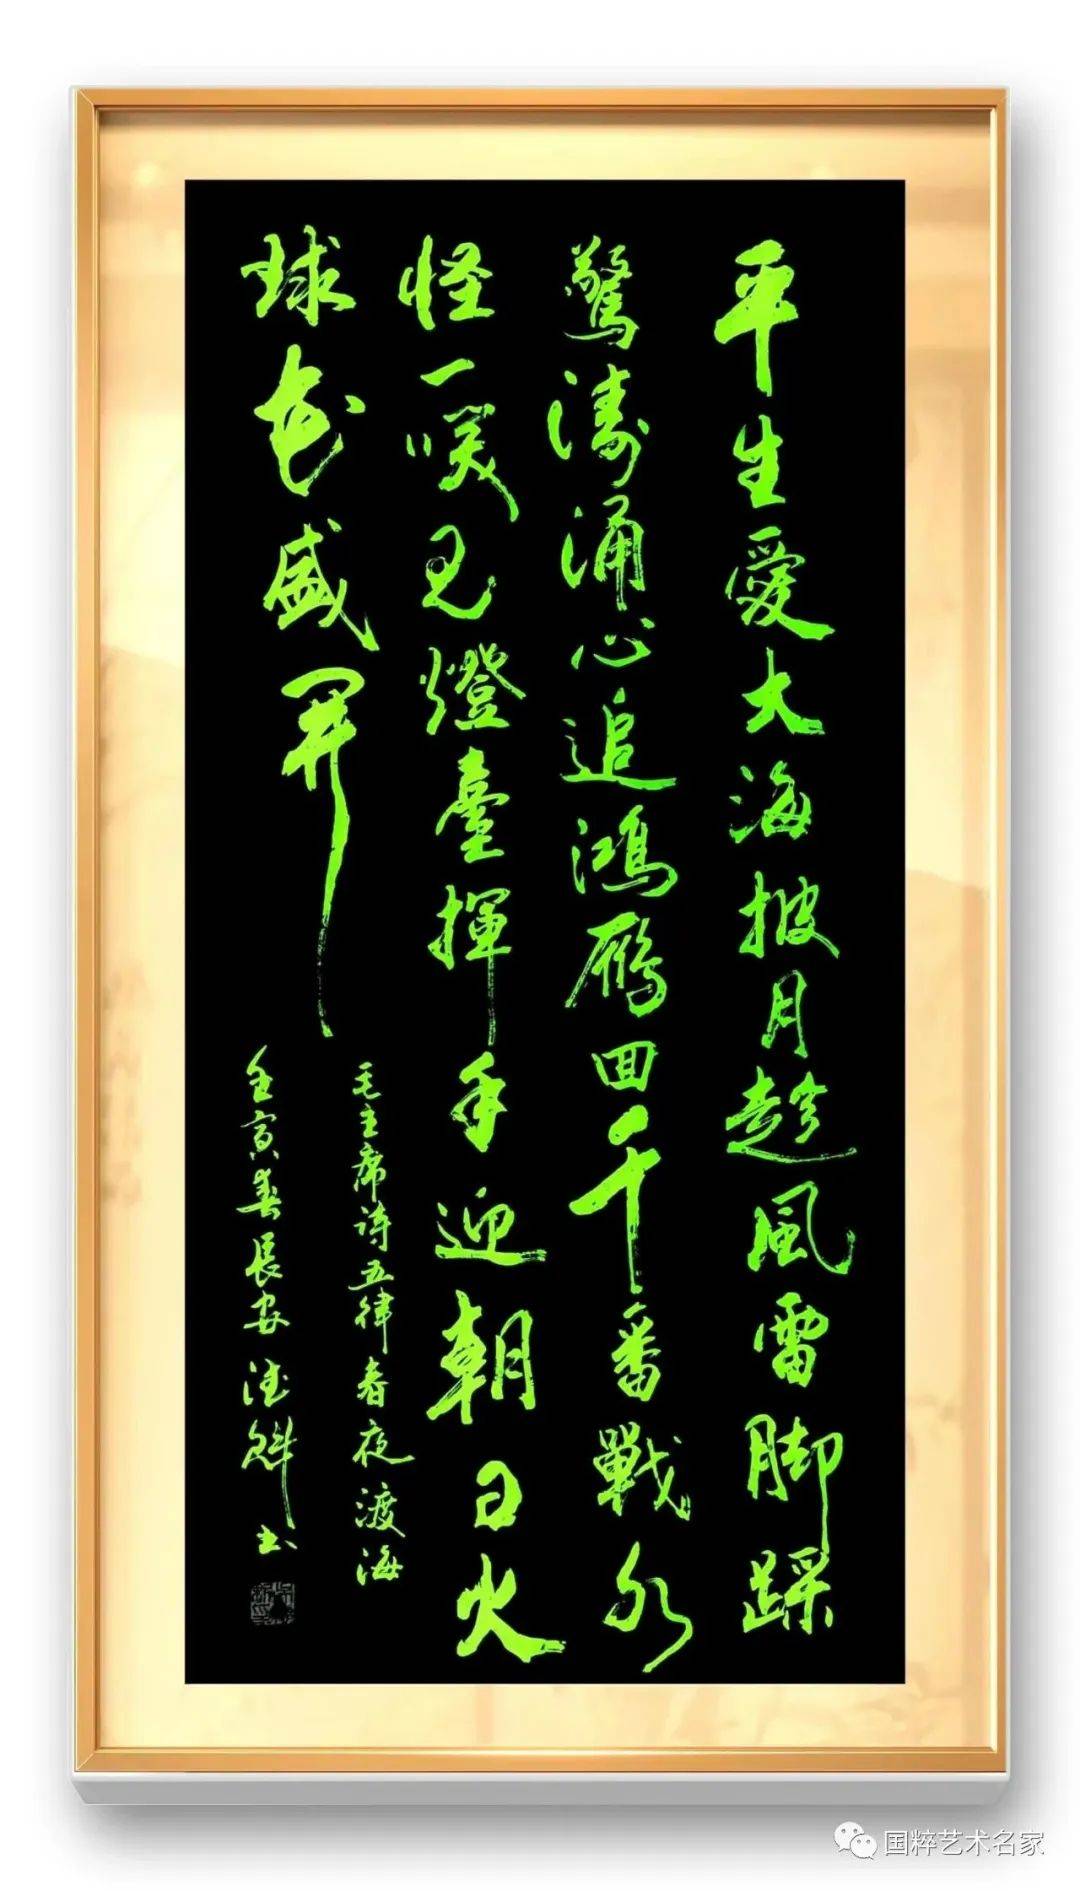 平生愛大海披月趁風雷脚踩
驚濤涌心追鴻雁回千番戰水
怪一咲见燈臺揮手迎朝日火
球花盛開
毛主席诗五律春夜渡海
壬寅春長安书
国粹艺术名家